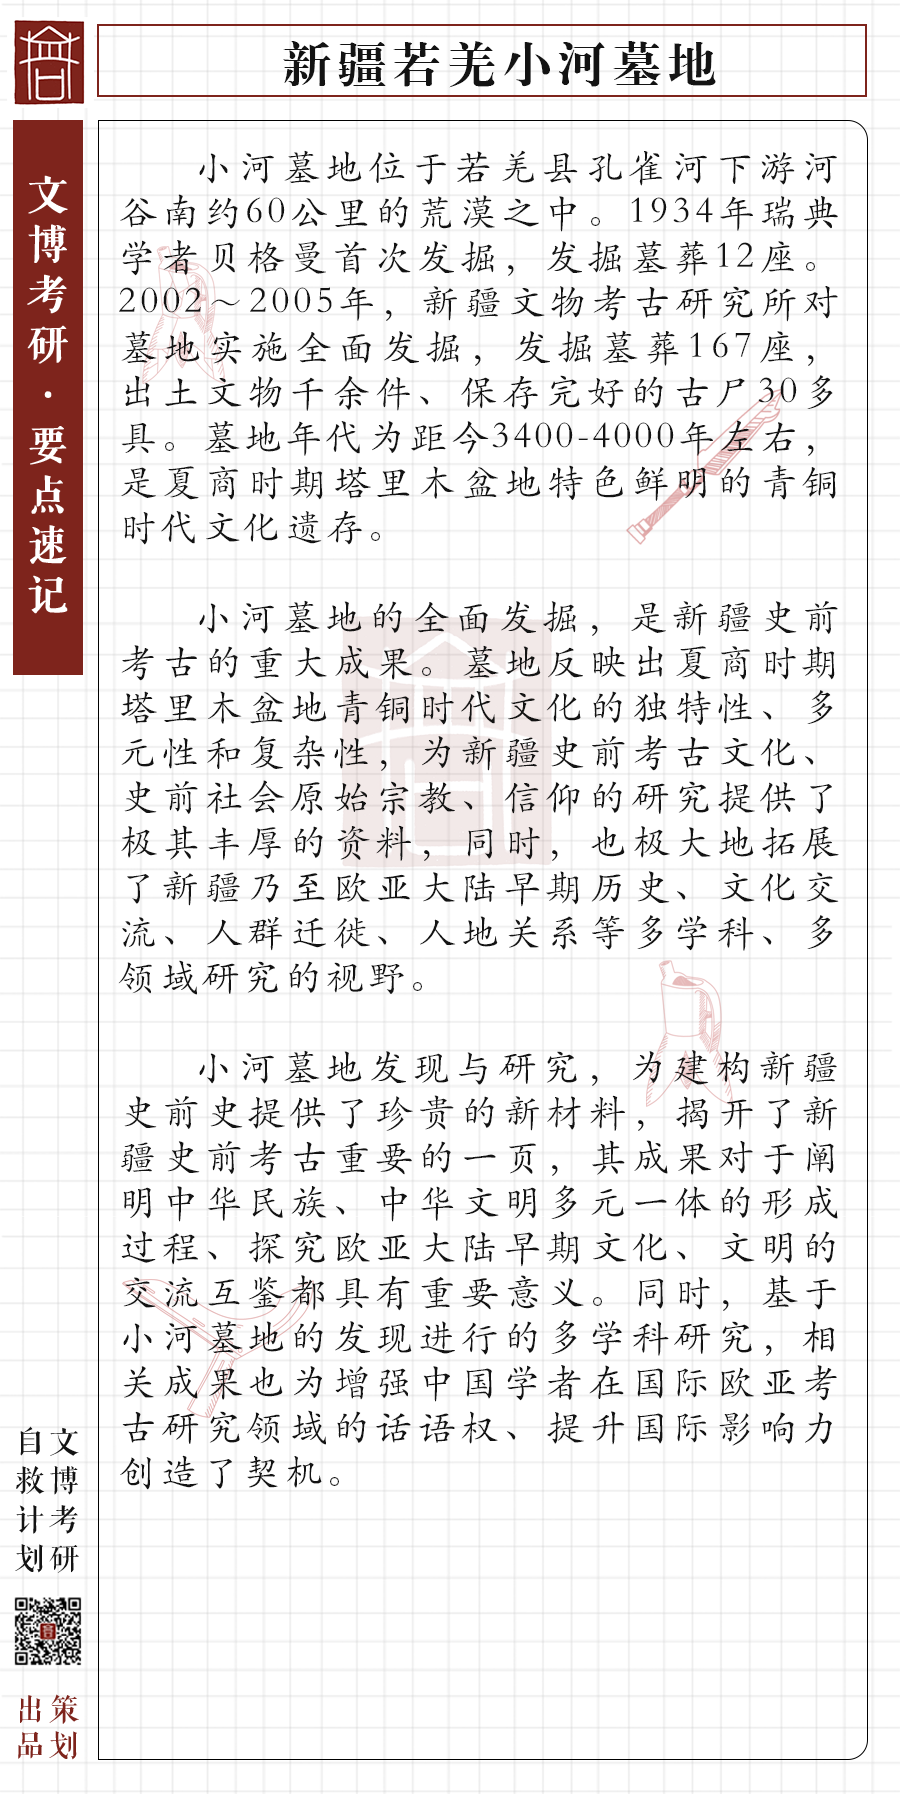 新疆若羌小河墓地
文博考研·要点速记
小河墓地位于若羌县孔雀河下游河
谷南约60公里的荒漠之中。1934年瑞典
学者贝格曼首次发掘，发掘墓葬12座。
2002～2005年，新疆文物考古研究所对
墓地实施全面发掘，发掘墓葬167座，
出土文物千余件、保存完好的古尸30多
具。墓地年代为距今3400-4000年左右，
是夏商时期塔里木盆地特色鲜明的青铜
时代文化遗存。
小河墓地的全面发掘，是新疆史前
考古的重大成果。墓地反映出夏商时期
塔里木盆地青铜时代文化的独特性、多
元性和复杂性，为新疆史前考古文化、
史前社会原始宗教、信仰的研究提供了
极其丰厚的资料，同时，也极大地拓展
了新疆乃至欧亚大陆早期历史、文化交
流、人群迁徙、人地关系等多学科、多
领域研究的视野。
小河墓地发现与研究，为建构新疆
史前史提供了珍贵的新材料，揭开了新
疆史前考古重要的一页，其成果对于阐
明中华民族、中华文明多元一体的形成
过程、探究欧亚大陆早期文化、文明的
交流互鉴都具有重要意义。同时，基于
小河墓地的发现进行的多学科研究，相
关成果也为增强中国学者在国际欧亚考
古研究领域的话语权、提升国际影响力
创造了契机。
文博考研
自救计划
策划
出品